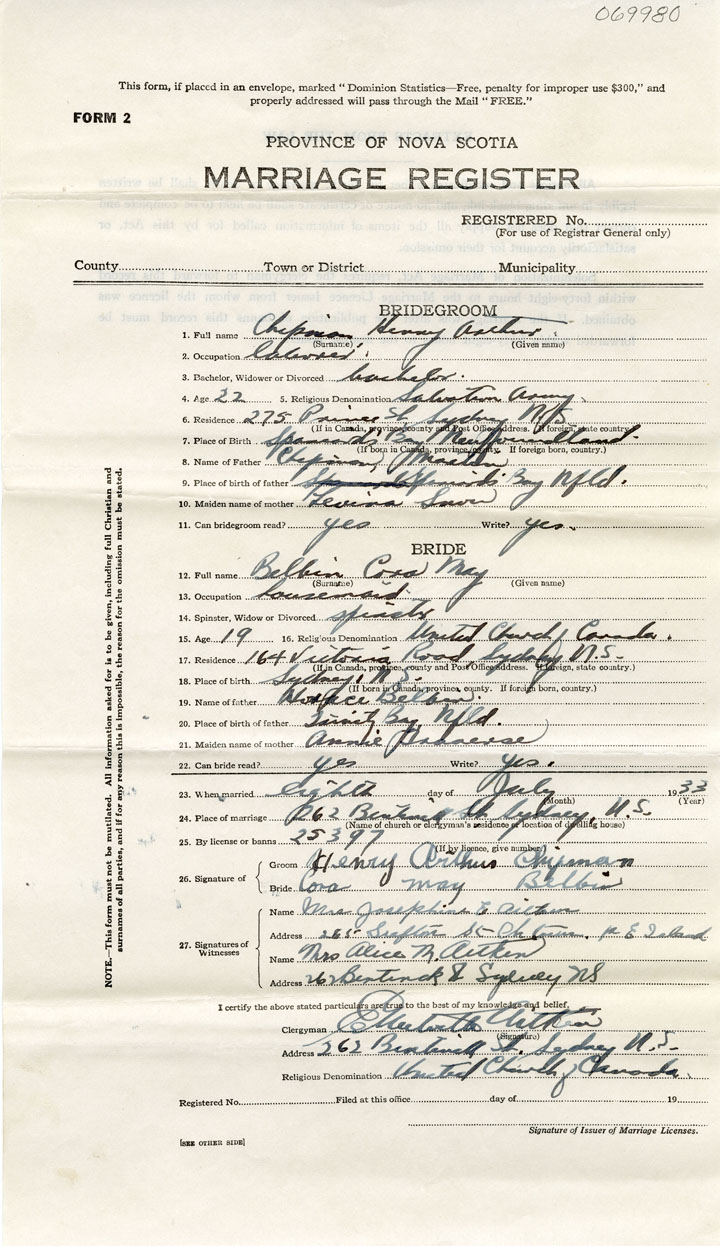 069980
This form, if placed in an envelope, marked "Dominion Statistics—Free, penalty for improper use $300," and
properly addressed will pass through the Mail "FREE."
FORM 2
PROVINCE OF NOVA SCOTIA
MARRIAGE REGISTER
REGISTERED No.
(For use of Registrar General only)
County Town or District Municipality
BRIDEGROOM
1. Full name Chipman Henry Arthur
(Surname) (Given name)
2. Occupation Laborer
3. Bachelor, Widower or Divorced bachelor
4. Age 22 5. Religious Denomination Salvation Army
6. Residence 275 Prince St Sydney N.S.
(If in Canada, province, county and Post Office address. If foreign, state country
7. Place of Birth Spaniards Bay Newfoundland
(If born in Canada, province, county. If foreign born, country.)
8. Name of Father Chipman,
9. Place of birth of father Spaniards Bay Nfld.
10. Maiden name of mother Levina Snow
11. Can bridegroom read? yes Write? yes
BRIDE
12. Full name Belbin Cora May
(Surname) (Given name)
13. Occupation housemaid
14. Spinster, Widow or Divorced spinster
15. Age 19 16. Religious Denomination United Church of Canada.
17. Residence 164 Victoria Road, Sydney N.S.
(If in Canada, province, county and Post Office address. If foreign, state country.)
18. Place of birth Sydney, N.S.
(If born in Canada, province, county. If foreign born, country.)
19. Name of father Belbin
20. Place of birth of father Trinity Bay Nfld.
21. Maiden name of mother Annie
22. Can bride read? yes Write? yes.
23. When married eighth day of July 1933
(Month) (Year)
24. Place of marriage 262 Bentinck St Sydney, N.S.
(Name of church or clergyman's residence or location of dwelling house)
25. By license or banns 25397
(If by licence, give number)
26. Signature of
Groom Henry Arthur Chipman
Bride Cora May Belbin
27. Signatures of Witnesses
Name Mrs Josephine E Aitken
Address 265 Grafton St Ch town, P E Island
Name Mrs Alice M. Aitken
Address 262 Bentinck St Sydney NS
I certify the above stated particulars are true to the best of my knowledge and belief.
Clergyman Aitken
(Signature)
Address 262 Bentinck St. Sydney N.S.
Religious Denomination United Church of Canada.
Registered No. Filed at this office day of 19
Signature of Issuer of Marriage Licenses.
[SEE OTHER SIDE]
NOTE.—This form must not be mutilated. All information asked for is to be given, including full Christian and
surnames of all parties, and if for any reason this is impossible, the reason for the omission must be stated.